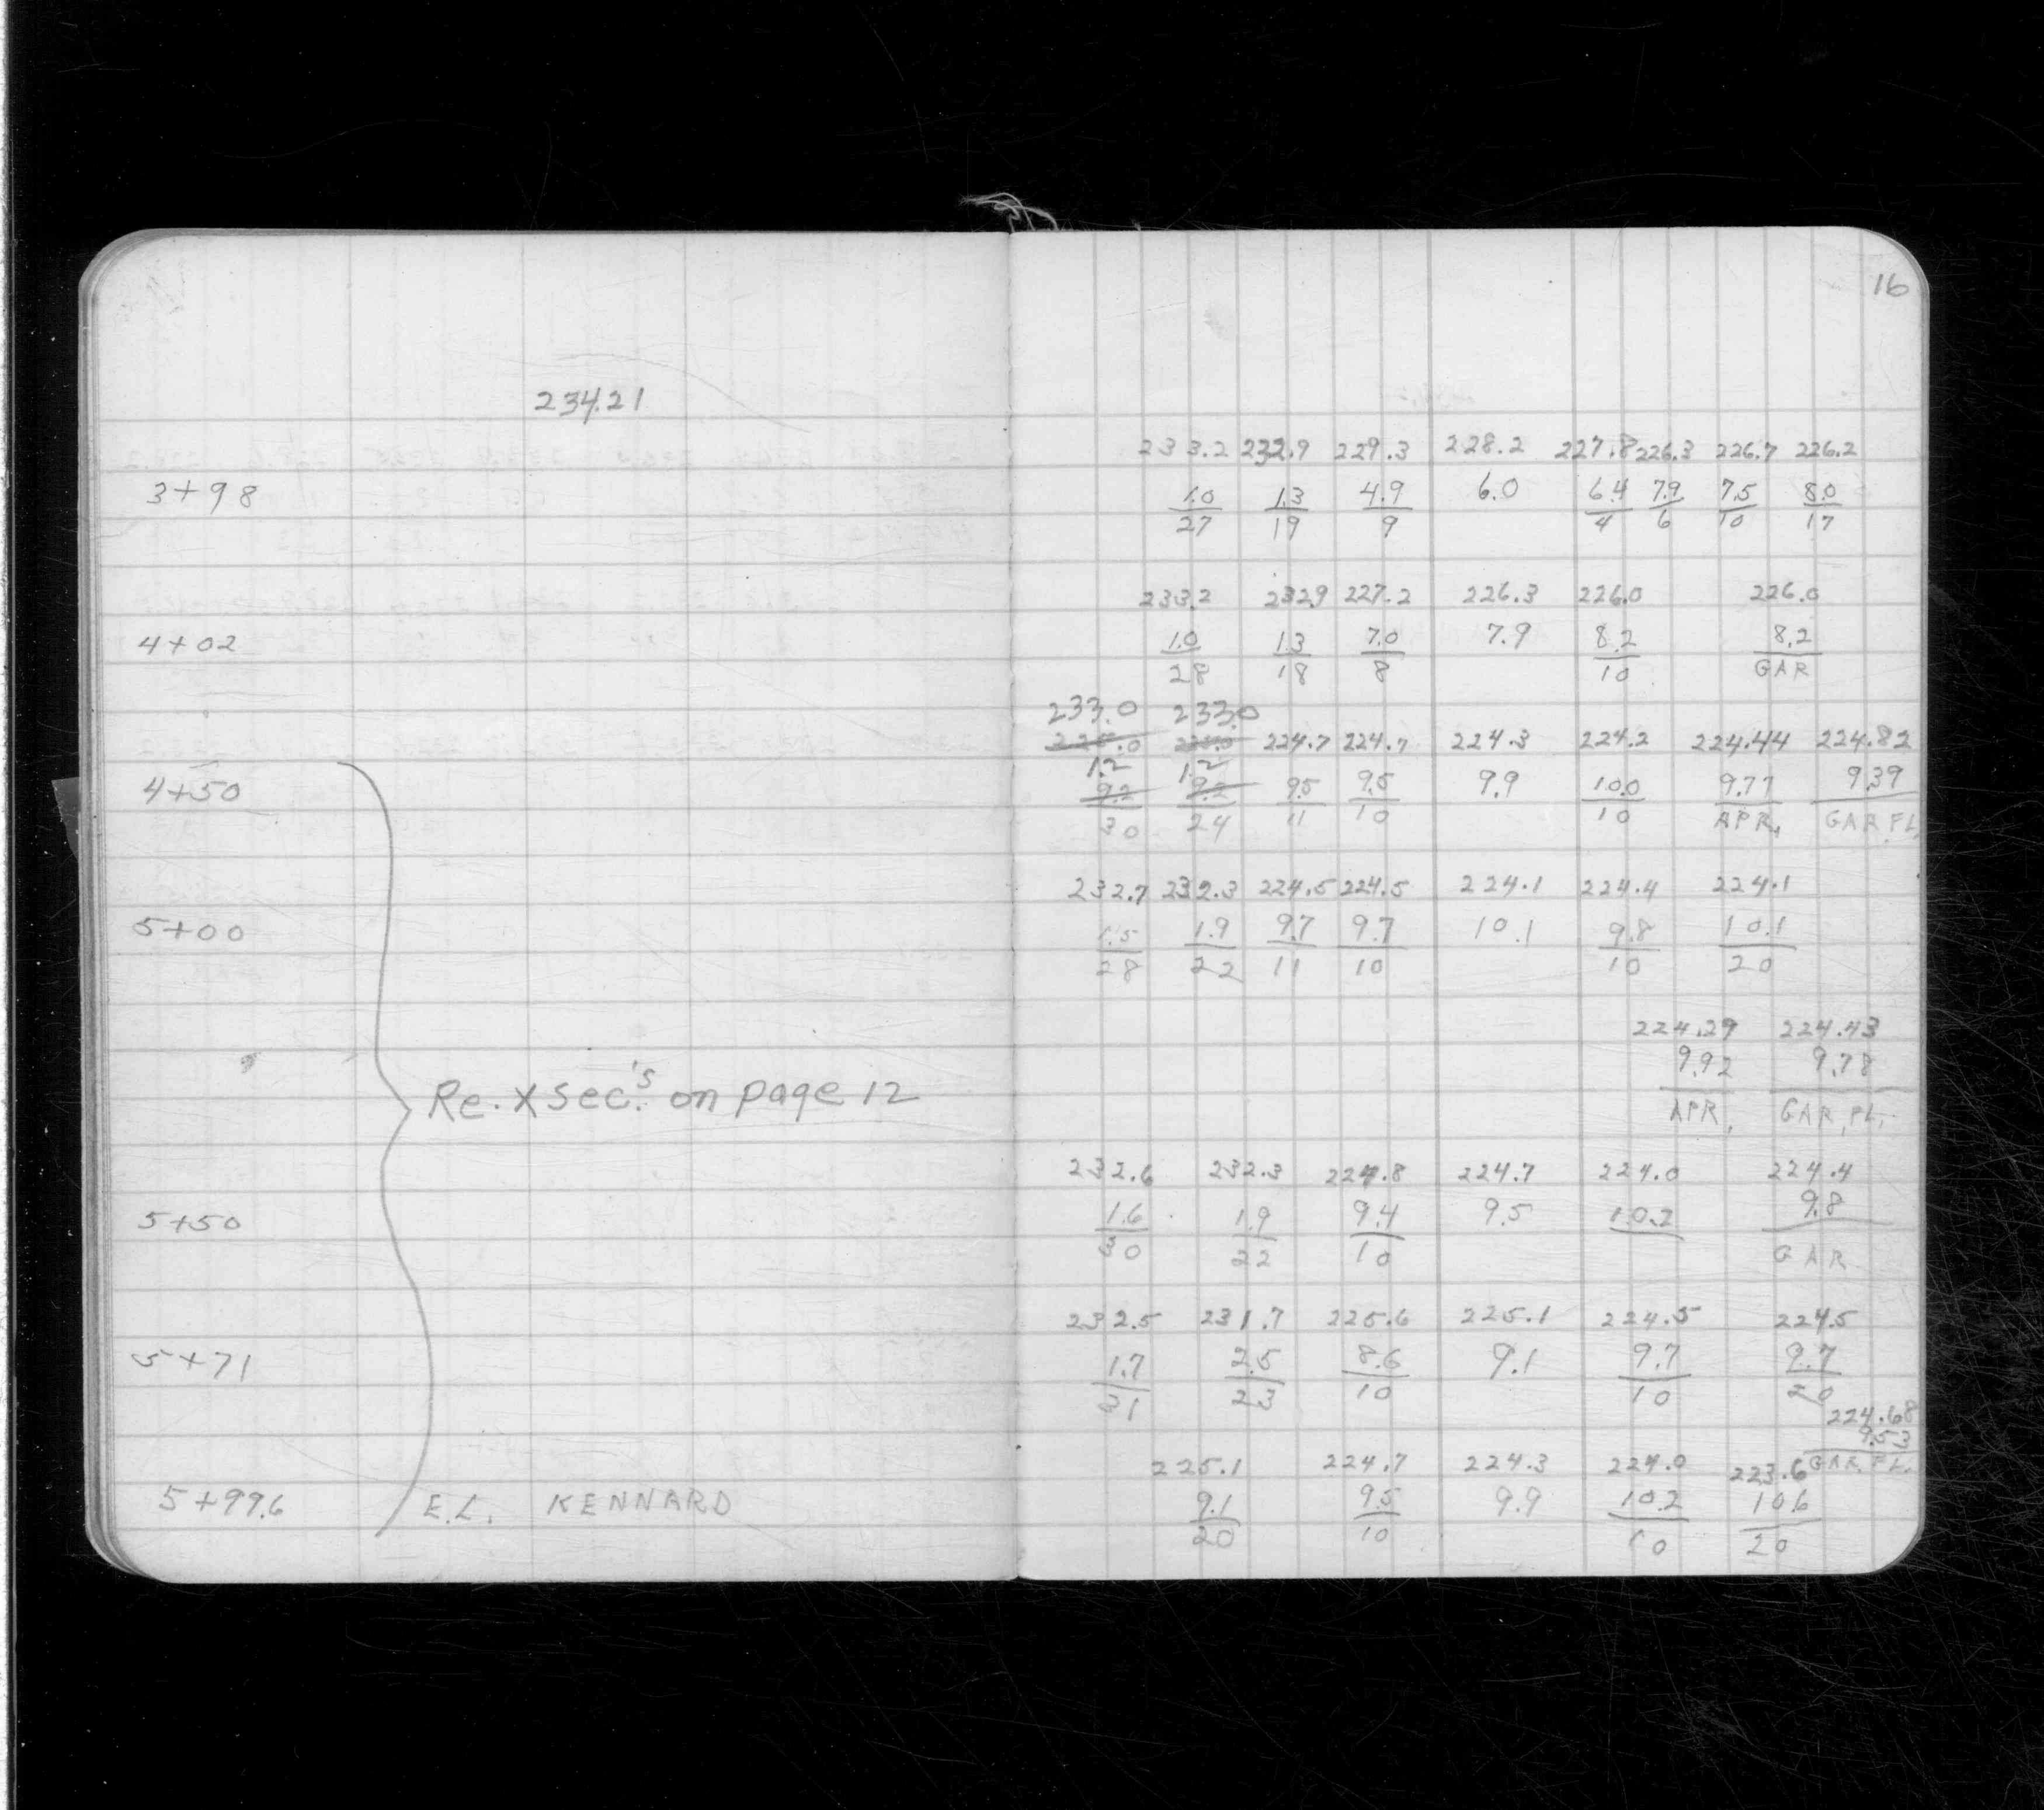 16
234.21
233.2 232.9 229.3 228.2 227.8 226.3 226.7 226.2
3+98 1.0 1.3 4.9 6.0 6.4 7.9 7.5 8.0
27 19 9 4 6 10 17
233.2 232.9 227.2 226.3 226.0 226.0
4+02 1.0 1.3 7.0 7.9 8.2 8.2
28 18 8 10 GAR
233.0 233.0
225.0 225.0 224.7 224.7 224.3 224.2 224.44 224.82
1.2 1.2
4+50 9.2 9.2 9.5 9.5 9.9 10.0 9.77 9.39
30 24 11 10 10 APR. GAR FL.
232.7 232.3 224.5 224.5 224.1 224.4 224.1
5+00 1.5 1.9 9.7 9.7 10.1 9.8 10.1
28 22 11 10 10 20
224.29 224.43
9.92 9.78
Re. X Sec.'s on page 12 APR. GAR. FL.
232.6 232.3 224.8 224.7 224.0 224.4
5+50 1.6 1.9 9.4 9.5 10.2 9.8
30 22 10 GAR
232.5 231.7 225.6 225.1 224.5 224.5
5+71 1.7 2.5 8.6 9.1 9.7 9.7
31 23 10 10 20
224.68
9.53
225.1 224.7 224.3 224.0 223.6 GAR. FL.
5+99.6 E.L. KENNARD 9.1 9.5 9.9 10.2 10.6
20 10 10 20